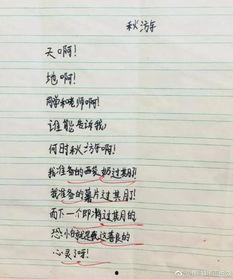 秋游
天啊!
地啊!
阿曾老师啊!
谁能告诉我,
何时秋游啊!
我准备的西装奶过其月了!
我准备的薯片过其月了!
而下一个即将过其月的
恐怕就是我这善良的
心灵了呀!